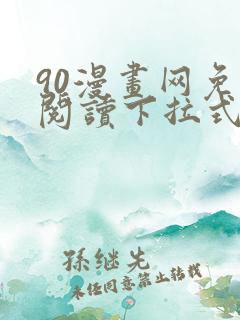 90漫畫网免
閱讀下拉式
孫继先
未经同意禁止转载